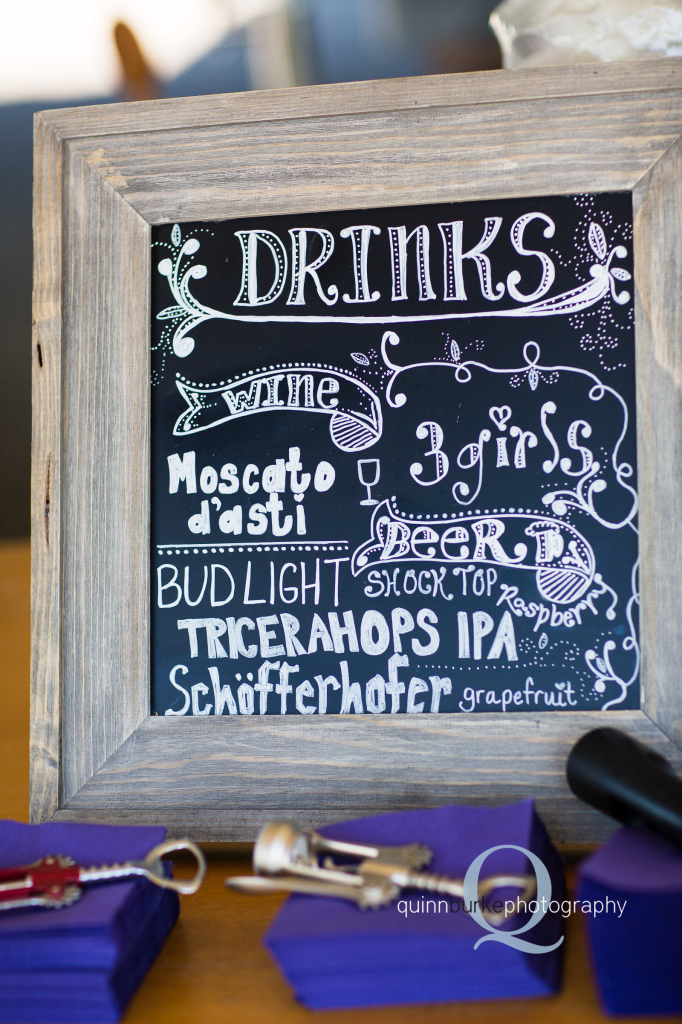 DRINKS
WINE
3 girls
Moscato
d'asti
BEER
BUD LIGHT
SHOCK TOP
Raspberry
TRICERAHOPS IPA
Schöfferhofer grapefruit
Q
quinnburkephotography